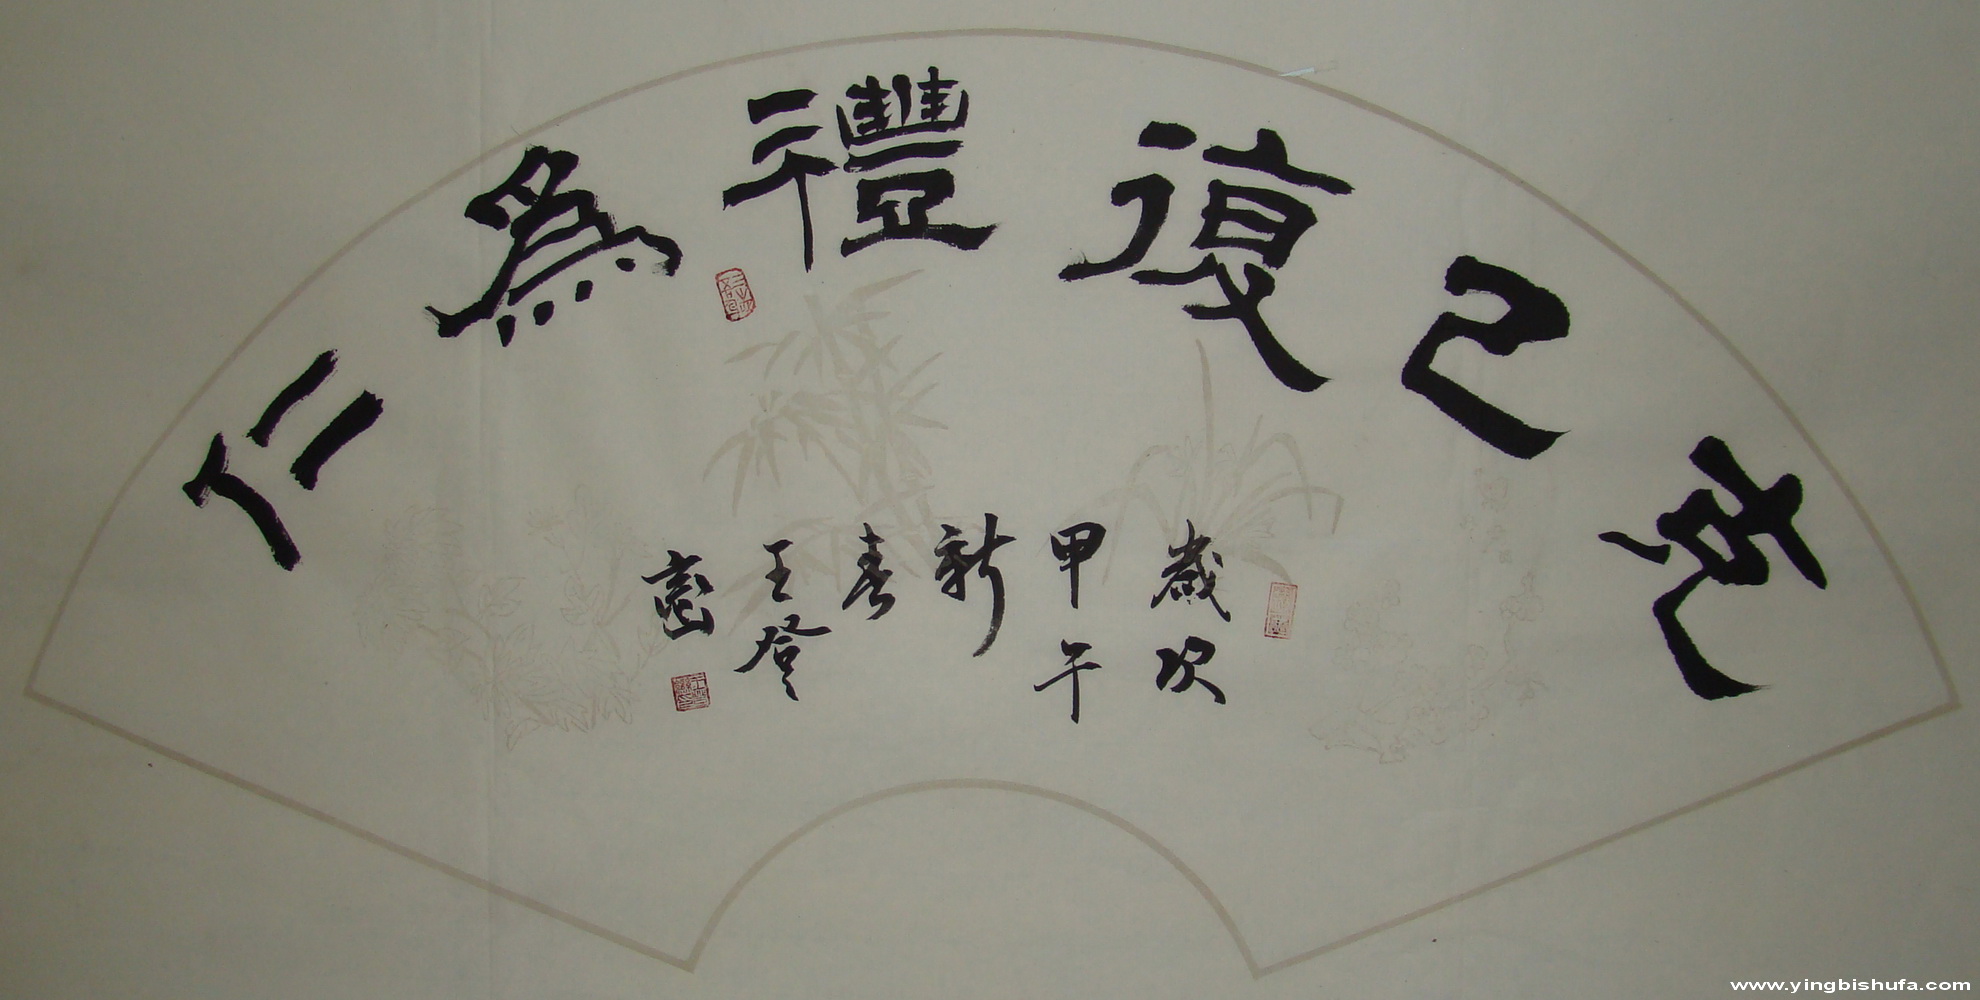 克己復禮為仁
歲次
甲午
新
春
王登
www.yingbishufa.com